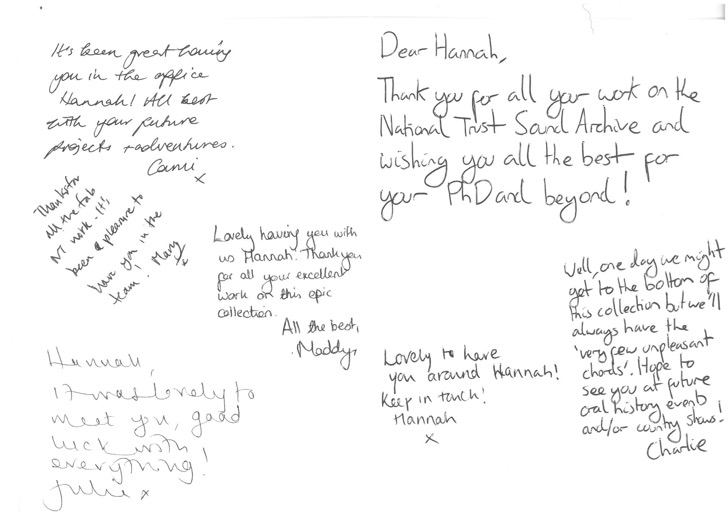 It's been great having
you in the office
Hannah! All best
with your future
projects + adventures.
Cami
x
Thanks for
all the fab
NT work - it's
been a pleasure to
have you in the
team! Mary
x
Lovely having you with
us Hannah. Thank you
for all your excellent
work on this epic
collection.
All the best,
Maddy
Hannah,
it was lovely to
meet you, good
luck with
everything!
Julie x
Dear Hannah,
Thank you for all your work on the
National Trust Sound Archive and
wishing you all the best for
your PhD and beyond!
Lovely to have
you around Hannah!
Keep in touch!
Hannah
x
Well, one day we might
get to the bottom of
this collection but we'll
always have the
'very few unpleasant
chords'. Hope to
see you at future
oral history events
and/or country shows!
Charlie